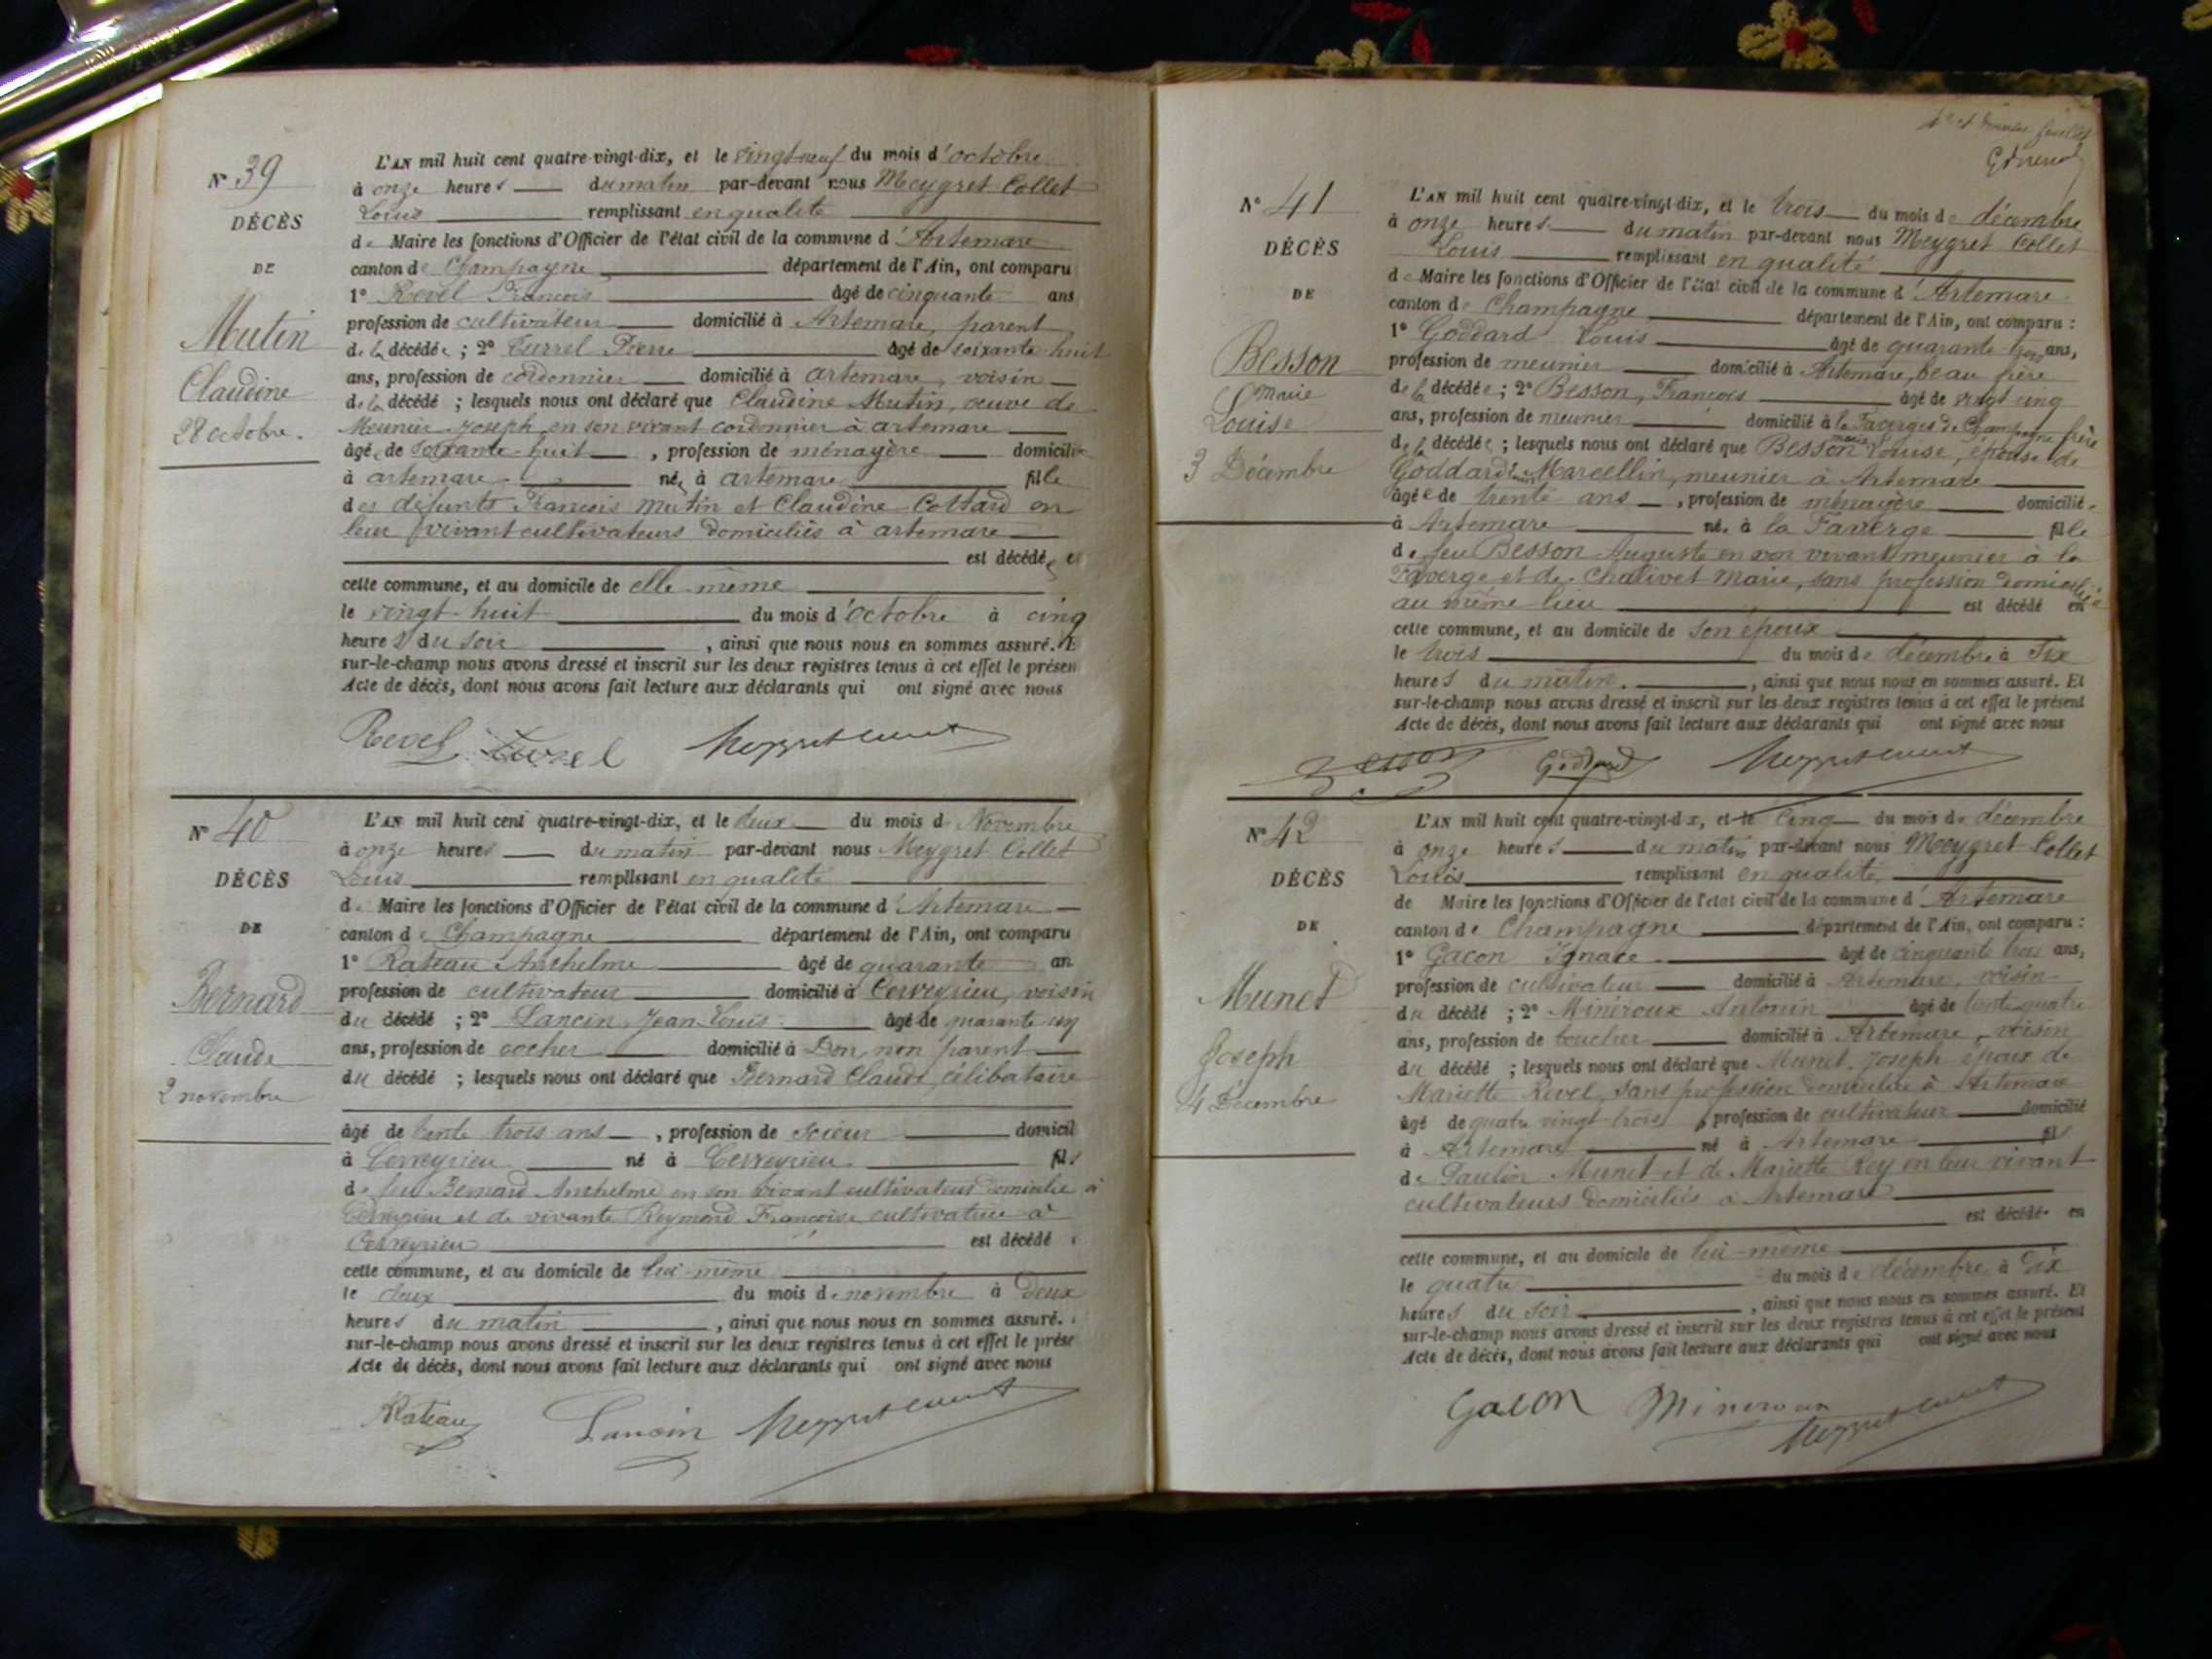 N° 39
DÉCÈS
DE
Mutin
Claudine
28 octobre.
L'AN mil huit cent quatre-vingt-dix, et le vingt-neuf du mois d'octobre
à onze heures du matin par-devant nous Meygret Collet
Louis remplissant en qualité
de Maire les fonctions d'Officier de l'état civil de la commune d'Artemare
canton de Champagne département de l'Ain, ont comparu
1° Revel François âgé de cinquante ans
profession de cultivateur domicilié à Artemare, parent
de la décédée ; 2° Turrel Pierre âgé de soixante-huit
ans, profession de cordonnier domicilié à artemare, voisin
de la décédé ; lesquels nous ont déclaré que Claudine Mutin, veuve de
Meunier Joseph, en son vivant cordonnier à artemare
âgée de soixante-huit , profession de ménagère domicili
à artemare née à artemare fille
des défunts François Mutin et Claudine Cottard en
leur vivant cultivateurs domiciliés à artemare
est décédée e
cette commune, et au domicile de elle-même
le vingt-huit du mois d'octobre à cinq
heures du soir , ainsi que nous nous en sommes assuré. E
sur-le-champ nous avons dressé et inscrit sur les deux registres tenus à cet effet le présen
Acte de décès, dont nous avons fait lecture aux déclarants qui ont signé avec nous
Revel Turrel
N° 40
DÉCÈS
DE
Bernard
Claude
2 novembre
L'AN mil huit cent quatre-vingt-dix, et le deux du mois d Novembre
à onze heures du matin par-devant nous Meygret Collet
Louis remplissant en qualité
de Maire les fonctions d'Officier de l'état civil de la commune d'Artemare
canton de Champagne département de l'Ain, ont comparu
1° Rateau Anthelme âgé de quarante an
profession de cultivateur domicilié à Cerveyrieu, voisin
du décédé ; 2° Lancin, Jean Louis âgé de quarante-un
ans, profession de cocher domicilié à Don, non parent
du décédé ; lesquels nous ont déclaré que Bernard Claude, célibataire
âgé de trente trois ans , profession de scieur domicil
à Cerveyrieu né à Cerveyrieu fils
de feu Bernard Anthelme en son vivant cultivateur domicilié à
Cerveyrieu et de vivante Reymond Françoise cultivatrice à
Cerveyrieu est décédé
cette commune, et au domicile de lui-même
le deux du mois de novembre à Deux
heures du matin , ainsi que nous nous en sommes assuré.
sur-le-champ nous avons dressé et inscrit sur les deux registres tenus à cet effet le prése
Acte de décès, dont nous avons fait lecture aux déclarants qui ont signé avec nous
Rateau Lancin
feuillet
N° 41
DÉCÈS
DE
Besson
Marie
Louise
3 Décembre
L'AN mil huit cent quatre-vingt-dix, et le trois du mois de décembre
à onze heures du matin par-devant nous Meygret Collet
Louis remplissant en qualité
de Maire les fonctions d'Officier de l'état civil de la commune d'Artemare
canton de Champagne département de l'Ain, ont comparu :
1° Goddard Louis âgé de quarante-trois ans,
profession de meunier domicilié à Artemare, beau frère
de la décédée ; 2° Besson, François âgé de vingt cinq
ans, profession de meunier domicilié à la Faverges de Champagne frère
de la décédée ; lesquels nous ont déclaré que Besson marie Louise, épouse de
Goddard Marcellin, meunier à Artemare
âgée de trente ans , profession de ménagère domicilié
à Artemare né à la Faverge fille
de feu Besson Auguste en son vivant meunier à la
Faverge et de Chalivet Marie, sans profession domiciliée
au même lieu est décédé en
cette commune, et au domicile de son époux
le trois du mois de décembre à Six
heures du matin. , ainsi que nous nous en sommes assuré. Et
sur-le-champ nous avons dressé et inscrit sur les deux registres tenus à cet effet le présent
Acte de décès, dont nous avons fait lecture aux déclarants qui ont signé avec nous
Besson Goddard
N° 42
DÉCÈS
DE
Munet
Joseph
4 Décembre
L'AN mil huit cent quatre-vingt-dix, et le cinq du mois de décembre
à onze heures du matin par-devant nous Meygret Collet
Louis remplissant en qualité
de Maire les fonctions d'Officier de l'état civil de la commune d'Artemare
canton de Champagne département de l'Ain, ont comparu :
1° Gacon Ignace âgé de cinquante trois ans,
profession de cultivateur domicilié à Artemare, voisin
du décédé ; 2° Minéroux Antonin âgé de trente quatre
ans, profession de boucher domicilié à Artemare, voisin
du décédé ; lesquels nous ont déclaré que Munet Joseph époux de
Mariette Revel, sans profession domiciliée à Artemare
âgé de quatre vingt-trois , profession de cultivateur domicilié
à Artemare né à Artemare fils
de Paulin Munet et de Mariette Rey en leur vivant
cultivateurs domiciliés à Artemare
est décédé en
cette commune, et au domicile de lui-même
le quatre du mois de décembre à Dix
heures du soir , ainsi que nous nous en sommes assuré. Et
sur-le-champ nous avons dressé et inscrit sur les deux registres tenus à cet effet le présent
Acte de décès, dont nous avons fait lecture aux déclarants qui ont signé avec nous
Gacon Mineroux